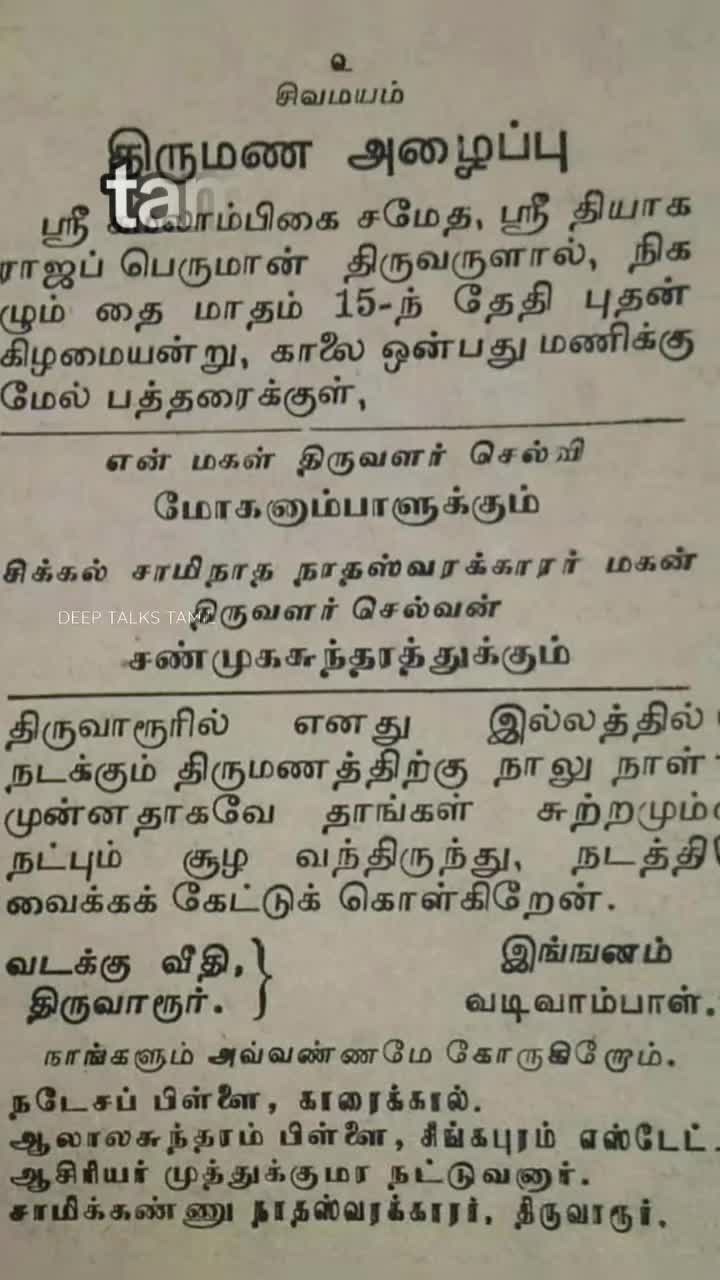 உ
சிவமயம்
திருமண அழைப்பு
ஸ்ரீ கமலாம்பிகை சமேத, ஸ்ரீ தியாக
ராஜப் பெருமான் திருவருளால், நிக
ழும் தை மாதம் 15-ந் தேதி புதன்
கிழமையன்று, காலை ஒன்பது மணிக்கு
மேல் பத்தரைக்குள்,
என் மகள் திருவளர் செல்வி
மோகனாம்பாளுக்கும்
சிக்கல் சாமிநாத நாதஸ்வரக்காரர் மகன்
DEEP TALKS TAMIL
திருவளர் செல்வன்
சண்முகசுந்தரத்துக்கும்
திருவாரூரில் எனது இல்லத்தில்
நடக்கும் திருமணத்திற்கு நாலு நாள்
முன்னதாகவே தாங்கள் சுற்றமும்
நட்பும் சூழ வந்திருந்து, நடத்தி
வைக்கக் கேட்டுக் கொள்கிறேன்.
வடக்கு வீதி, இங்ஙனம்
திருவாரூர். வடிவாம்பாள்.
நாங்களும் அவ்வண்ணமே கோருகிறோம்.
நடேசப் பிள்ளை, காரைக்கால்.
ஆலாலசுந்தரம் பிள்ளை, சிங்கபுரம் எஸ்டேட்.
ஆசிரியர் முத்துக்குமர நட்டுவனார்.
சாமிக்கண்ணு நாதஸ்வரக்காரர், திருவாரூர்.